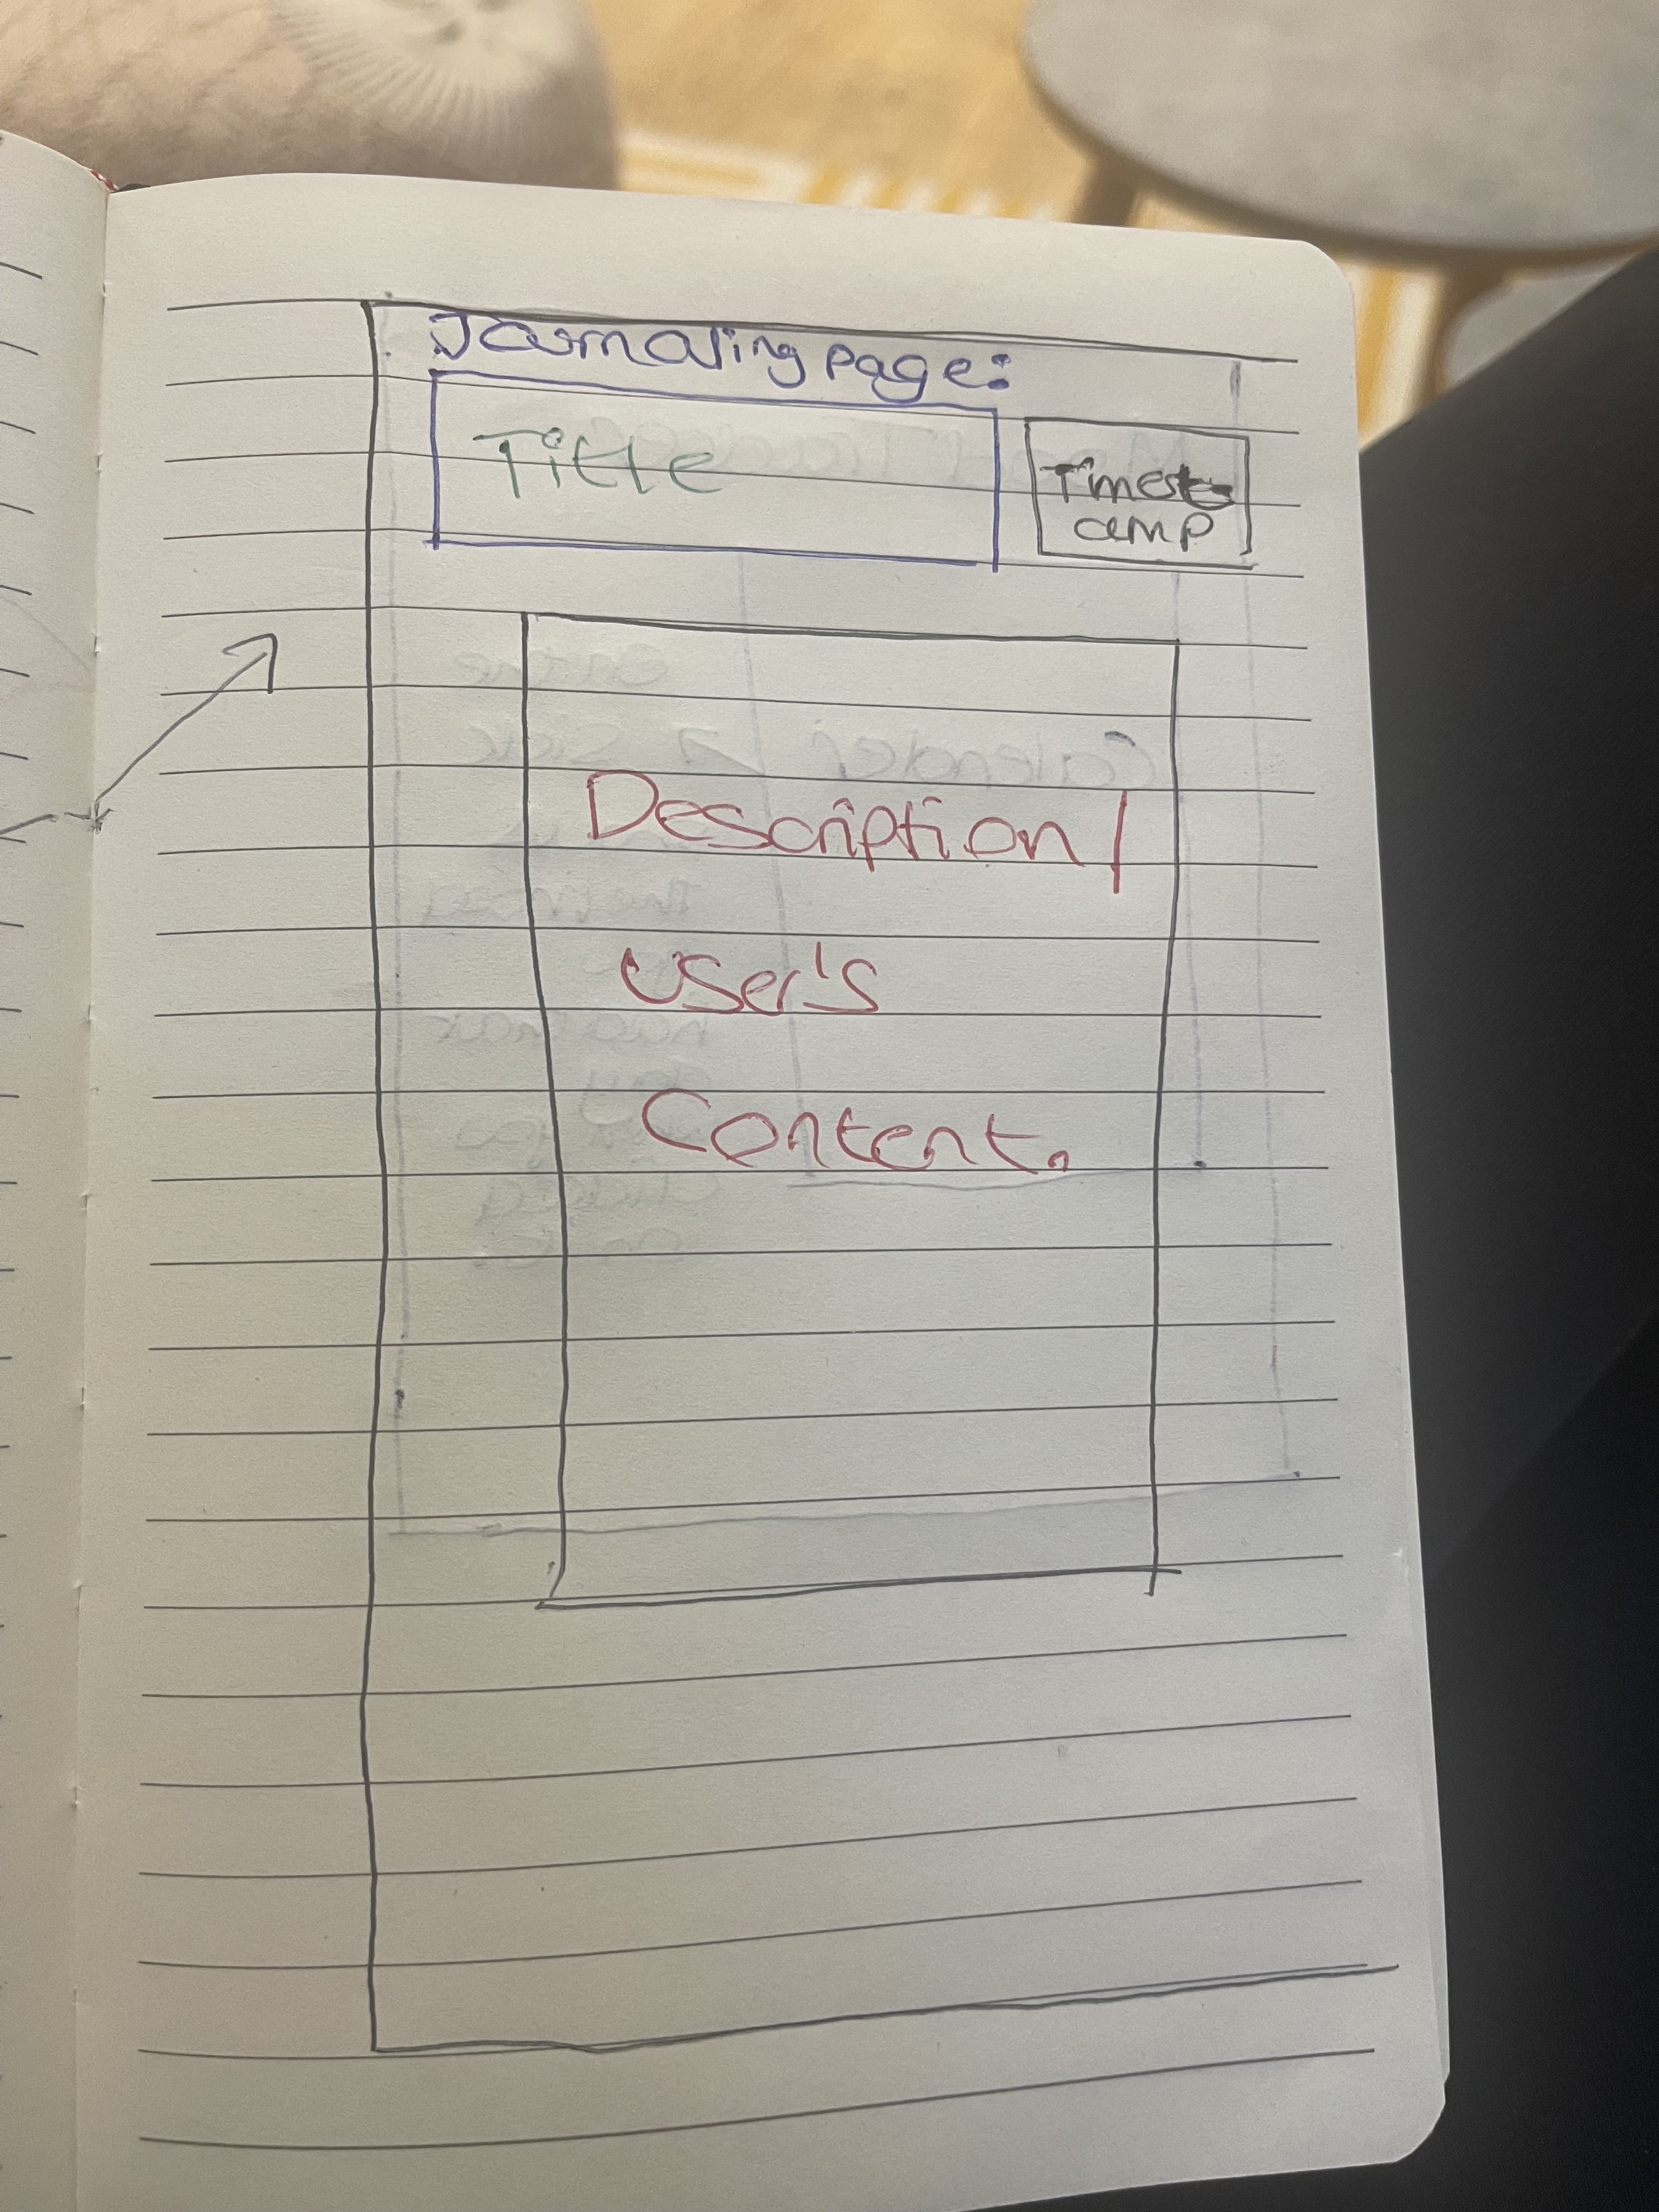 Journaling page:
Title
Timest
amp
Description/
User's
Content.